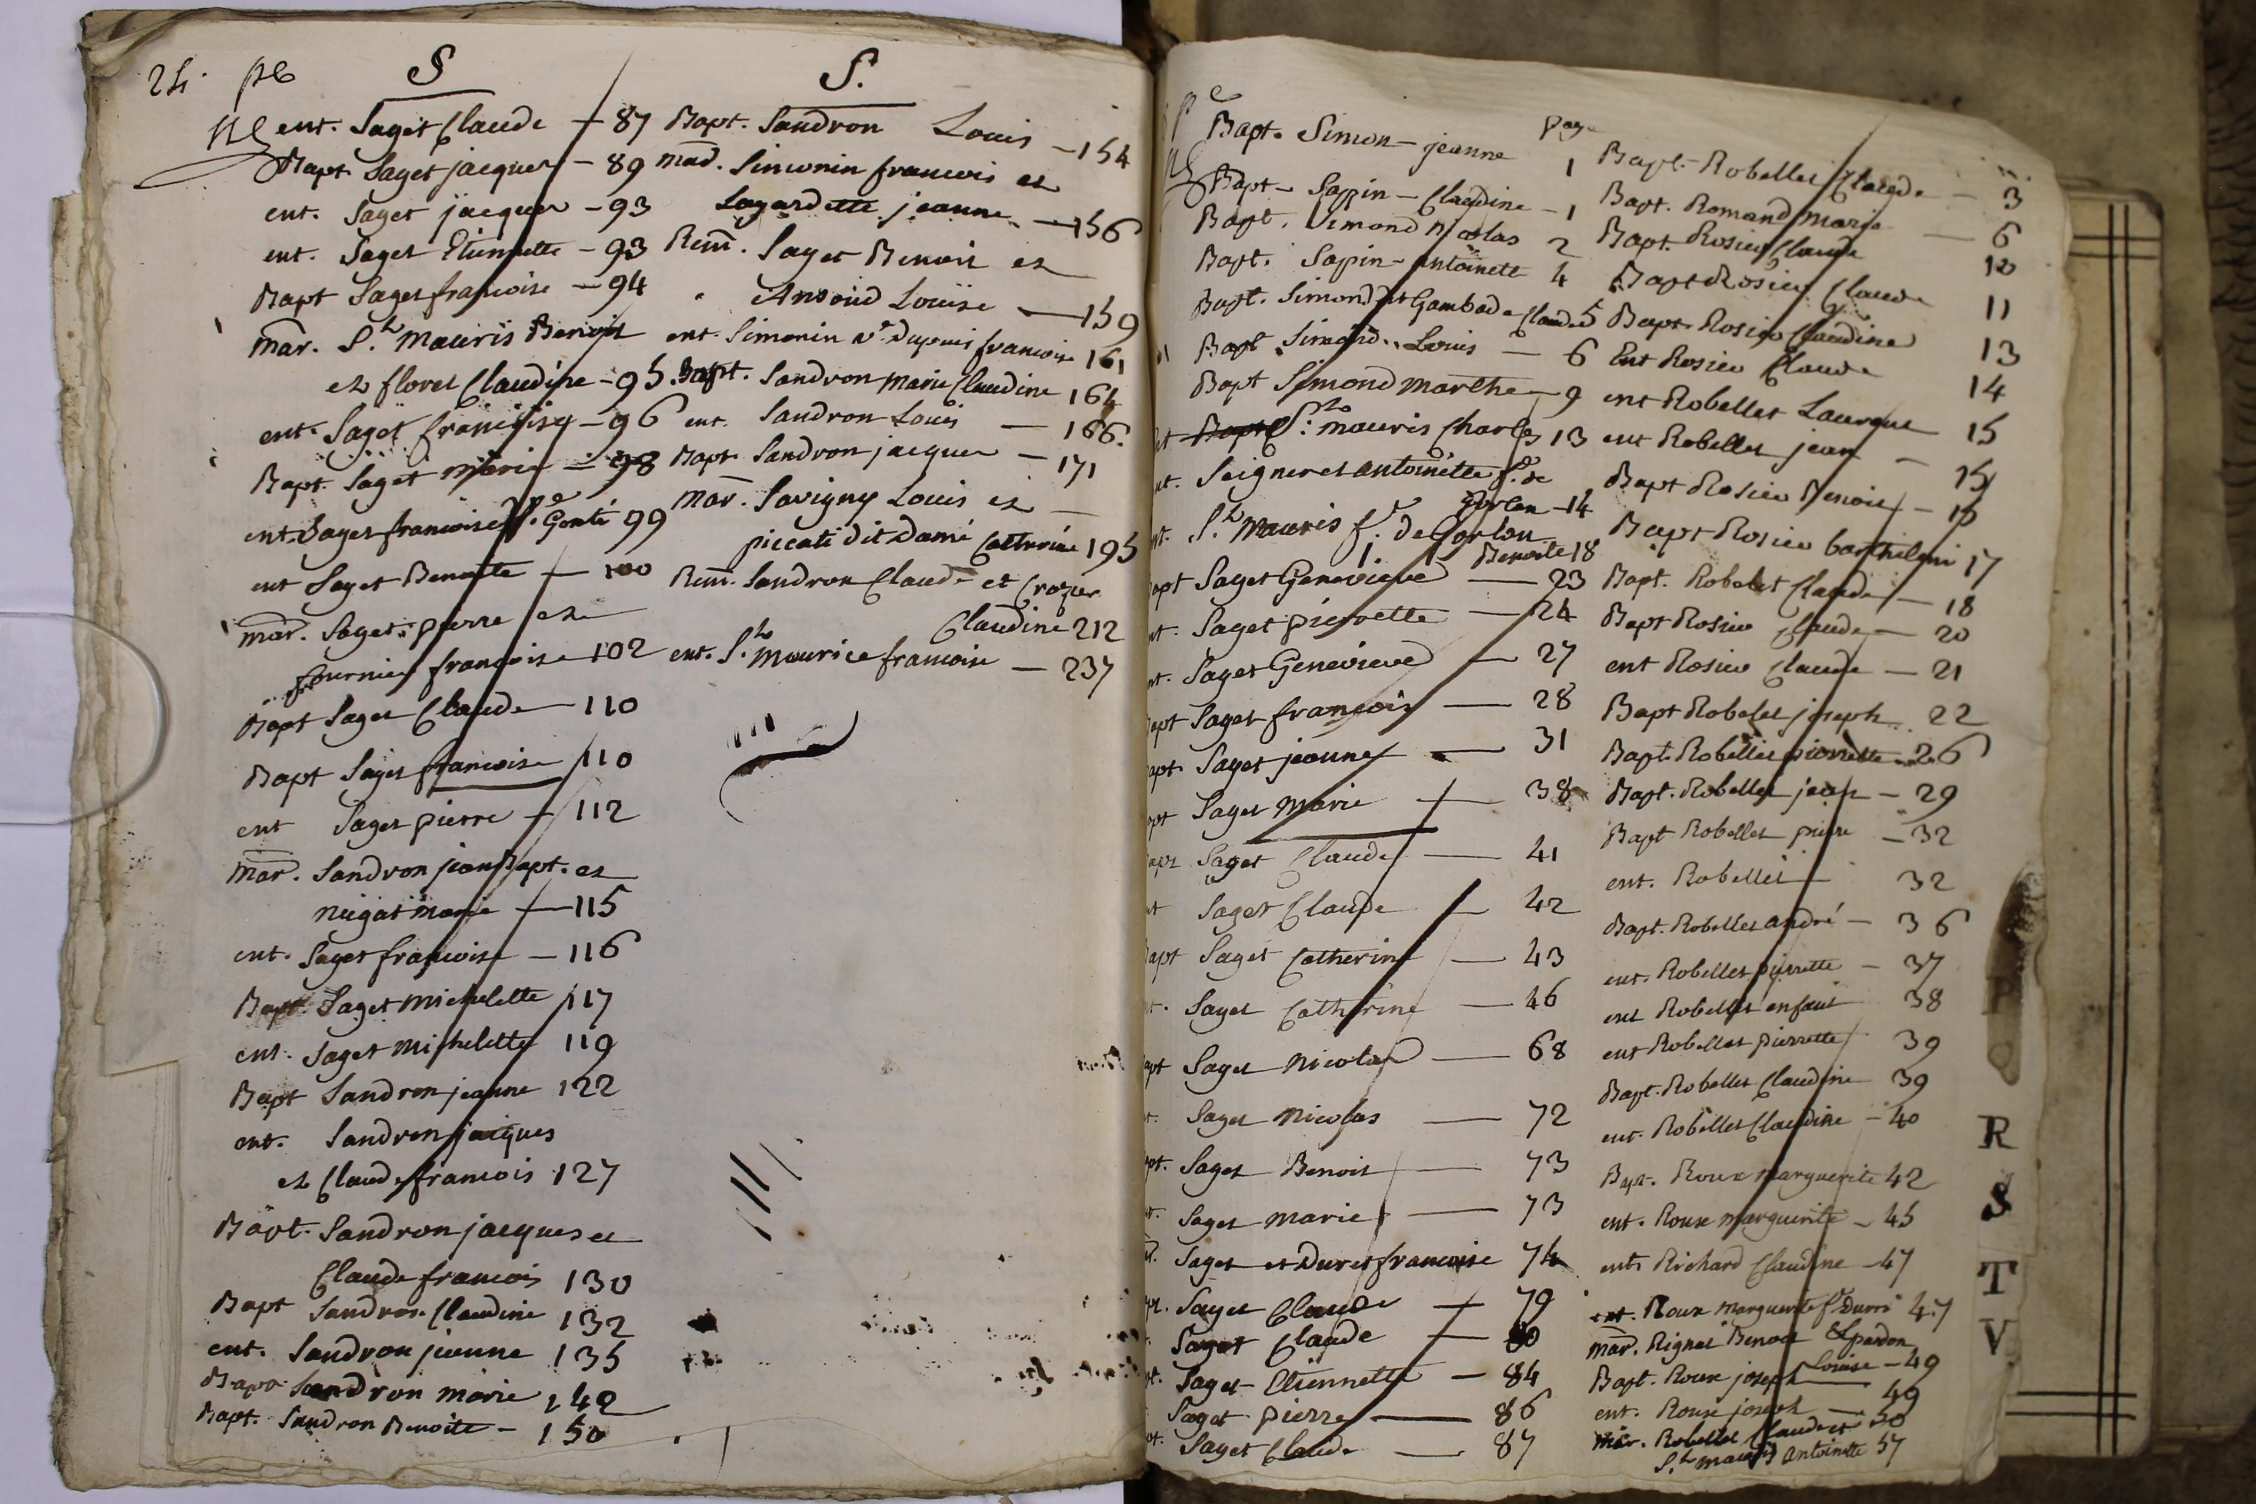 24.
S
ent. Saget Claude - 87
Bapt. Saget jacques - 89
ent. Saget jacques - 93
ent. Saget Etiennette - 93
Bapt Saget francoise - 94
mar. S.t Mauris Benoit
et floret Claudine - 95.
ent. Saget francoise - 96
Bapt. Saget marie - 98
ent. Saget francoise f.e Gonté 99
ent Saget Benoite - 100
mar. Saget pierre et
fournier francoise 102
Bapt Saget Claude - 110
Bapt Saget francoise 110
ent Saget pierre - 112
mar. Sandron jean Bapt. et
nugat marie - 115
ent. Saget francoise - 116
Bapt. Saget michelette 117
ent. Saget michelette 119
Bapt Sandron jeanne 122
ent. Sandron jacques
et Claude francois 127
Bapt. Sandron jacques et
Claude francois 130
Bapt Sandron Claudine 132
ent. Sandron jeanne 135
Bapt Sandron marie 142
Bapt. Sandron Benoite - 150
S.
Bapt. Sandron Louis - 154
mar. Simonin francois et
Lagardette jeanne - 156
Rem. Saget Benoit et
Louise - 159
ent. Simonin v.e Dupuis francoise 161
Bapt. Sandron marie Claudine 164
ent. Sandron Louis - 166.
Bapt. Sandron jacques - 171
mar. Savigny Louis et
piccati dit Damé Catherine 195
Rem. Sandron Claude et Crozier
Claudine 212
ent. S.t maurice francoise - 237
page
Bapt. Simon - jeanne 1
Bapt - Sappin - Claudine - 1
Bapt. Simond nicolas 2
Bapt. Sapin - antoinette 4
Bapt. Simond dit Gambade Claude 5
Bapt Simond. Louis - 6
Bapt Simond marthe - 9
Bapt S.t mauris Charles 13
Seigneret antoinette f.e de
Gorlon - 14
S.t mauris f.e de Gorlon
Benoite 18
Saget Genevieve - 23
Saget pierrette - 24
Saget Genevieve - 27
Saget francois - 28
Saget jeanne - 31
Saget marie - 38
Saget Claude - 41
Saget Claude - 42
Saget Catherine - 43
Saget Catherine - 46
Saget nicolas - 68
Saget nicolas - 72
Saget Benoit - 73
Saget marie - 73
Saget et Duret francoise 74
Saget Claude - 79
Saget Claude - 80
Saget - Etiennette - 84
Saget pierre - 86
Saget Claude - 87
Bapt. Robellet Claude - 3
Bapt. Romand marie - 6
Bapt. Rosier Claude 10
Bapt Rosier Claude 11
Bapt. Rosier Claudine 13
Ent Rosier Claude 14
ent Robellet Laurent 15
ent Robellet jean - 15
Bapt Rosier Benoit - 15
Bapt Rosier barthelmi 17
Bapt. Robelet Claude - 18
Bapt Rosier Claude - 20
ent Rosier Claude - 21
Bapt Robelet joseph 22
Bapt. Robellet pierrette 26
Bapt. Robellet jean - 29
Bapt Robellet pierre - 32
ent. Robellet - 32
Bapt. Robellet andré - 36
ent. Robellet pierrette - 37
ent Robellet enfant 38
ent Robellet pierrette 39
Bapt. Robellet Claudine 39
ent. Robellet Claudine - 40
Bapt. Roux marguerite 42
ent. Roux marguerite - 45
ent Richard Claudine - 47
ent. Roux marguerite f.e Durri 47
mar. Rignat Benoit &
Louise - 49
Bapt. Roux joseph 49
ent. Roux joseph - 50
mar. Robellet Claude et
S.t mauris antoinette 57
P
Q
R
S
T
V